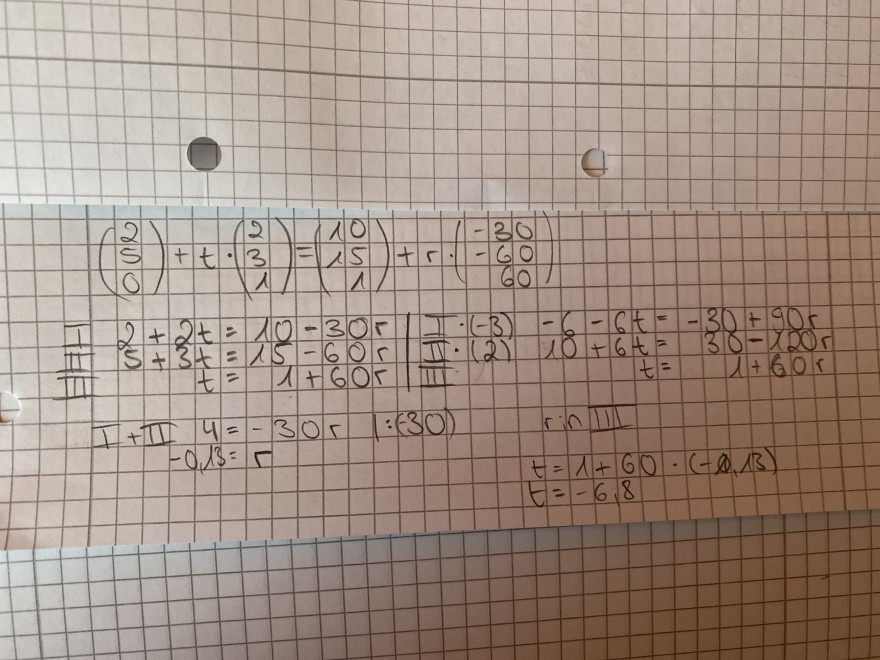 (2 5 0) + t · (2 3 1) = (10 15 1) + r · (-30 -60 60)
I 2 + 2t = 10 - 30r | I · (-3) -6 - 6t = -30 + 90r
II 5 + 3t = 15 - 60r | II · (2) 10 + 6t = 30 - 120r
III t = 1 + 60r | III t = 1 + 60r
I + II 4 = - 30r |:(-30) r in III
-0,13 = r
t = 1 + 60 · (-0,13)
t = -6,8